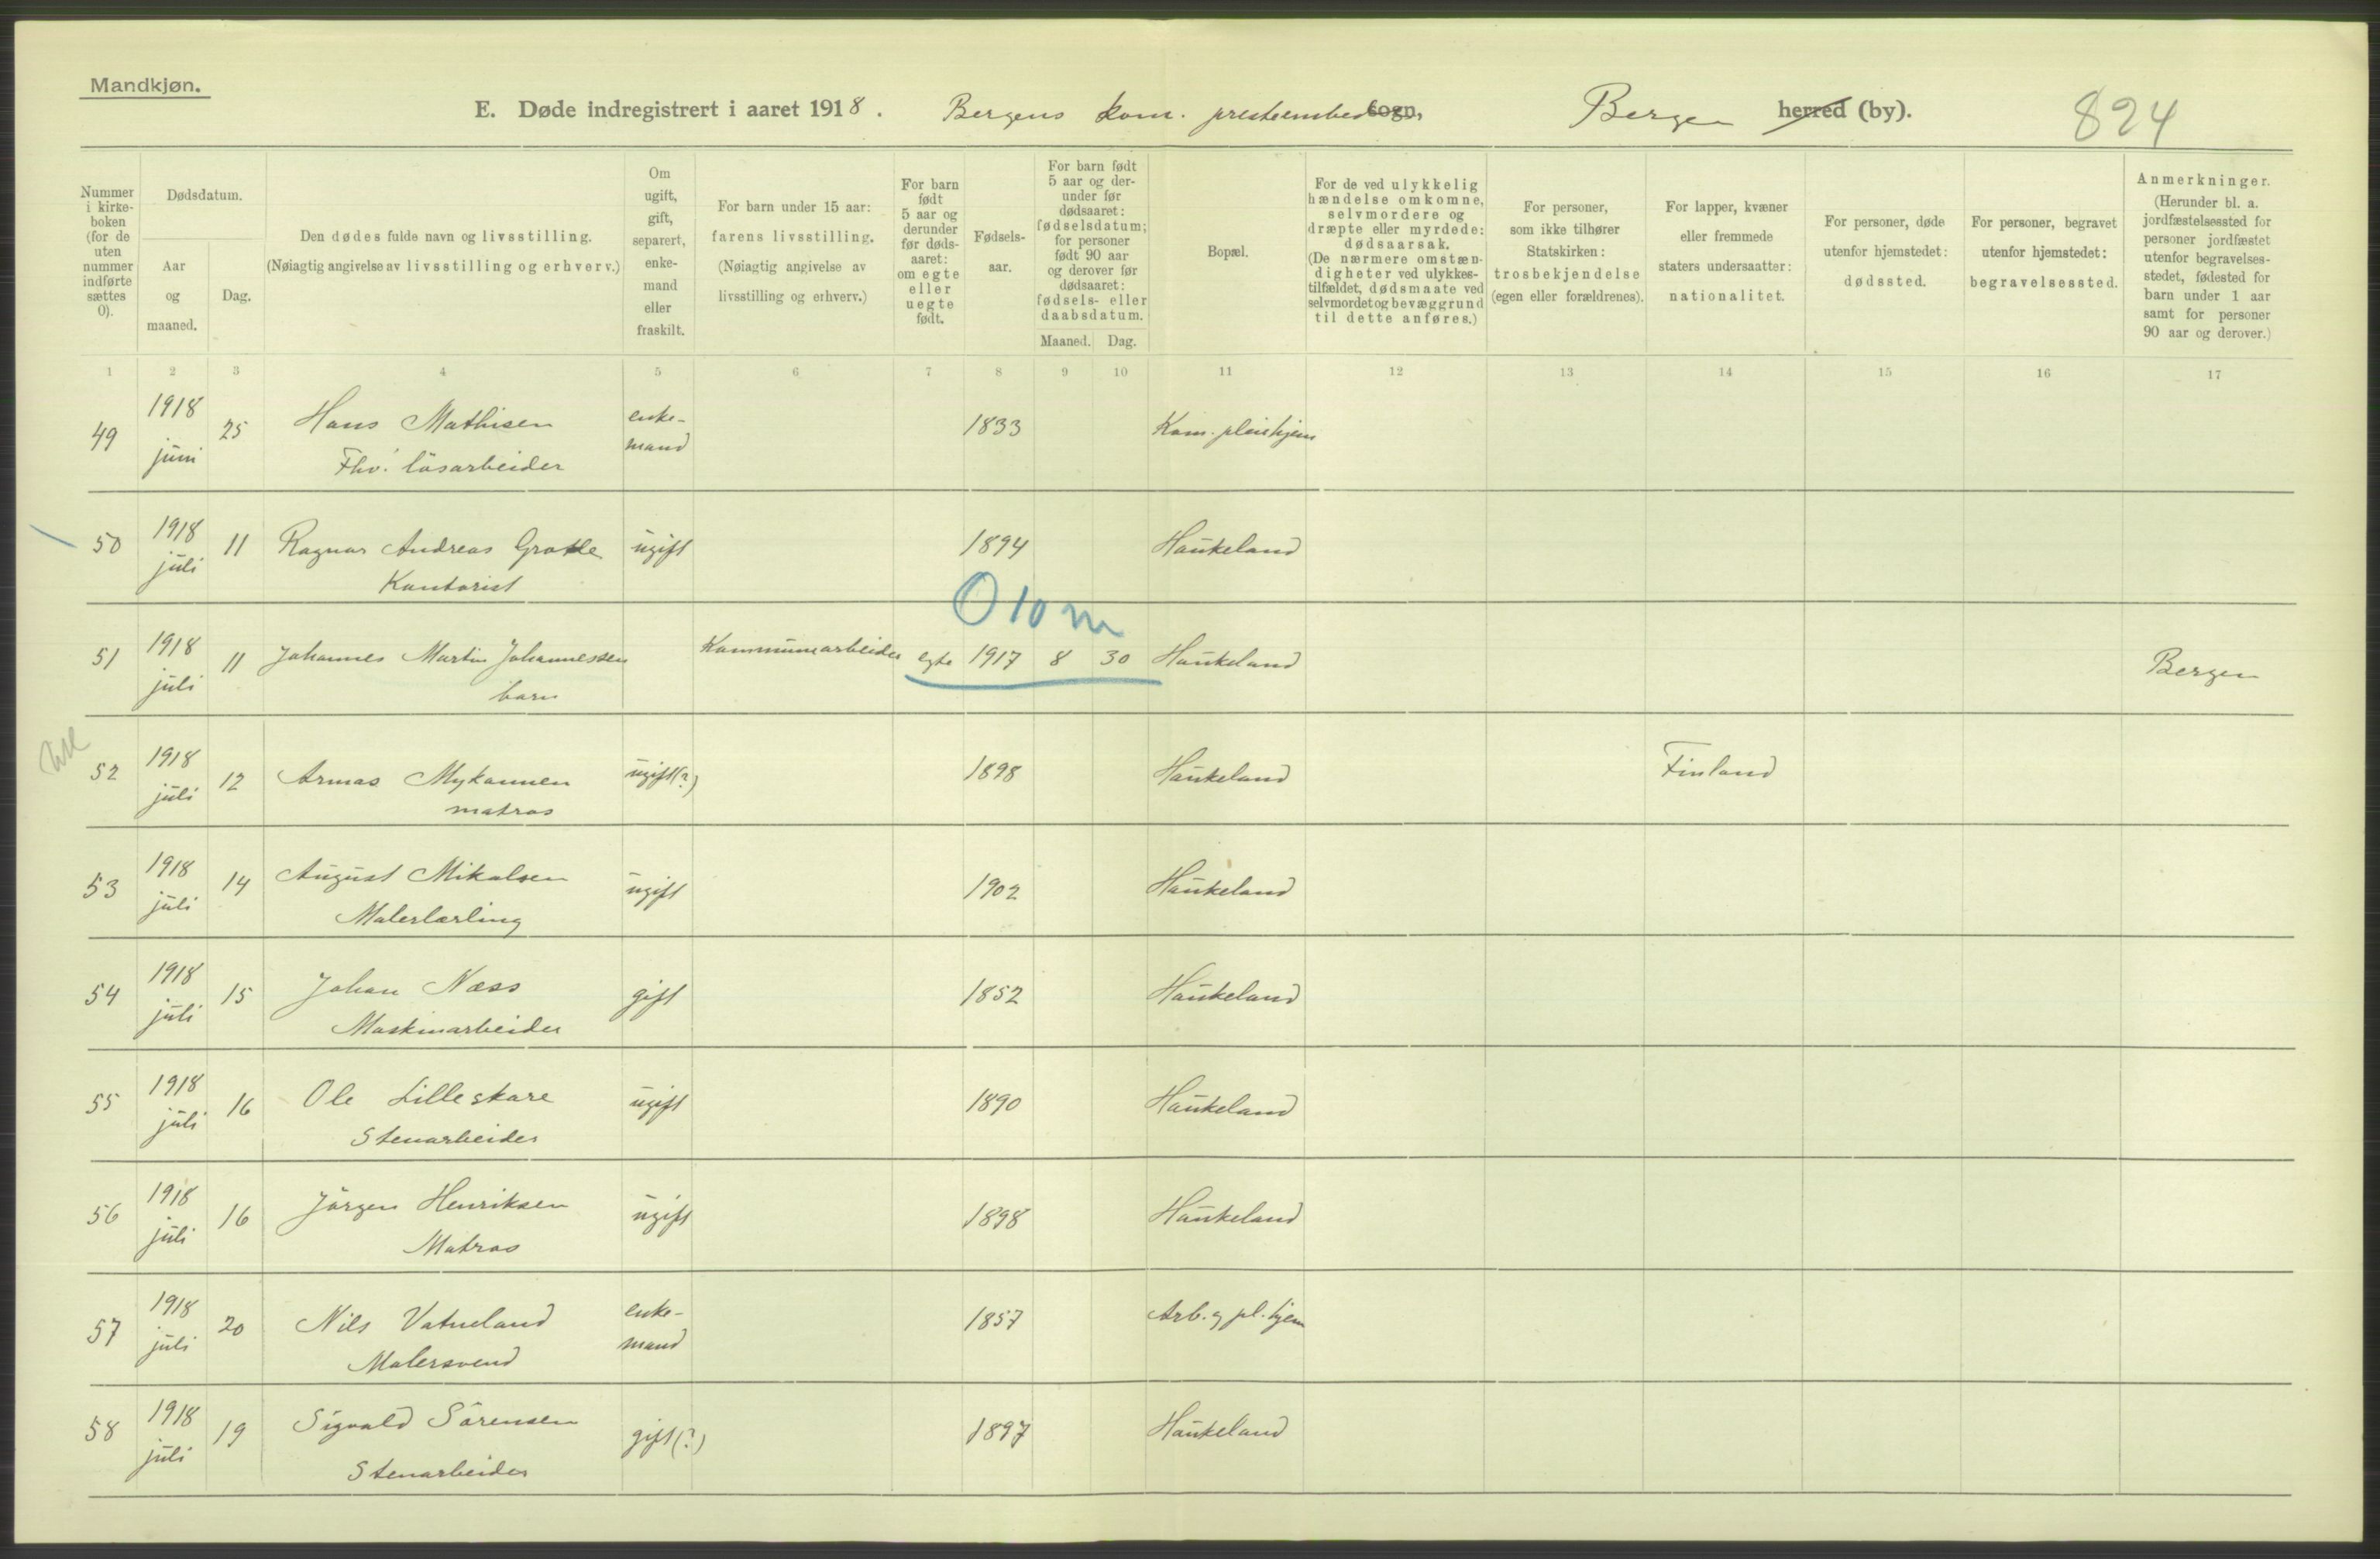 Mandkjøn.
E. Døde indregistrert i aaret 1918. Bergens kom. presteembed sogn, Bergen herred (by). 824
Nummer i kirke-boken (for de uten nummer indførte sættes 0).
Dødsdatum.
Aar og maaned.
Dag.
Den dødes fulde navn og livsstilling.
(Nøiagtig angivelse av livsstilling og erhverv.)
Om ugift, gift, separert, enke-mand eller fraskilt.
For barn under 15 aar: farens livsstilling.
(Nøiagtig angivelse av livsstilling og erhverv.)
For barn født 5 aar og derunder før døds-aaret: om egte eller uegte født.
Fødsels-aar.
For barn født 5 aar og der-under før dødsaaret: fødselsdatum; for personer født 90 aar og derover før dødsaaret: fødsels- eller daabsdatum.
Maaned. Dag.
Bopæl.
For de ved ulykkelig hændelse omkomne, selvmordere og dræpte eller myrdede: dødsaarsak.
(De nærmere omstæn-digheter ved ulykkes-tilfældet, dødsmaate ved selvmordet og bevæggrund til dette anføres.)
For personer, som ikke tilhører Statskirken: trosbekjendelse (egen eller forældrenes).
For lapper, kvæner eller fremmede staters undersaatter: nationalitet.
For personer, døde utenfor hjemstedet: dødssted.
For personer, begravet utenfor hjemstedet: begravelsessted.
Anmerkninger.
(Herunder bl. a. jordfæstelsessted for personer jordfæstet utenfor begravelses-stedet, fødested for barn under 1 aar samt for personer 90 aar og derover.)
1 2 3 4 5 6 7 8 9 10 11 12 13 14 15 16 17
49 1918 juni 25 Hans Mathisen enke-mand 1833 Kom. pleiehjem
Fhv. løsarbeider
50 1918 juli 11 Ragnar Andreas ugift 1894 Haukeland
Kontorist
0 10 m
51 1918 juli 11 Johannes Martin Johannessen Kommunearbeider egte 1917 8 30 Haukeland Bergen
barn
52 1918 juli 12 Armas Mykannen ugift(?) 1898 Haukeland Finland
matros
53 1918 juli 14 August Mikalsen ugift 1902 Haukeland
Malerlærling
54 1918 juli 15 Johan Næss gift 1852 Haukeland
Maskinarbeider
55 1918 juli 16 Ole Lilleskare ugift 1890 Haukeland
Stenarbeider
56 1918 juli 16 Jörgen Henriksen ugift 1898 Haukeland
Matros
57 1918 juli 20 Nils Vatneland enke-mand 1857 Arb. og pl. hjem
Malersvend
58 1918 juli 19 Sigvald Sörensen gift(?) 1897 Haukeland
Stenarbeider